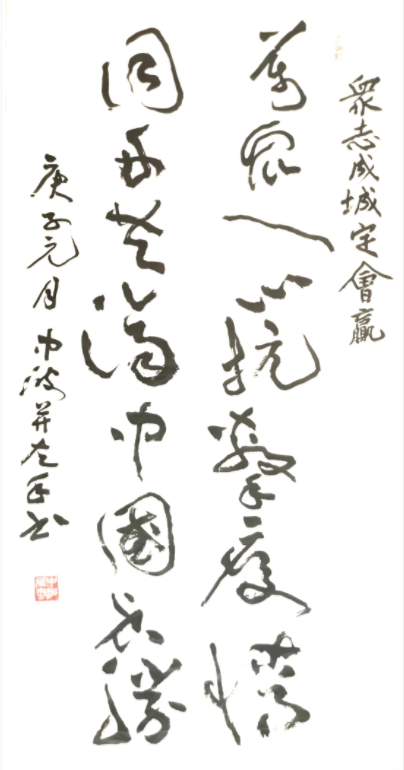 衆志成城定會贏
萬衆一心抗擊疫情
同舟共濟中國必勝
庚子元月中波并左手书